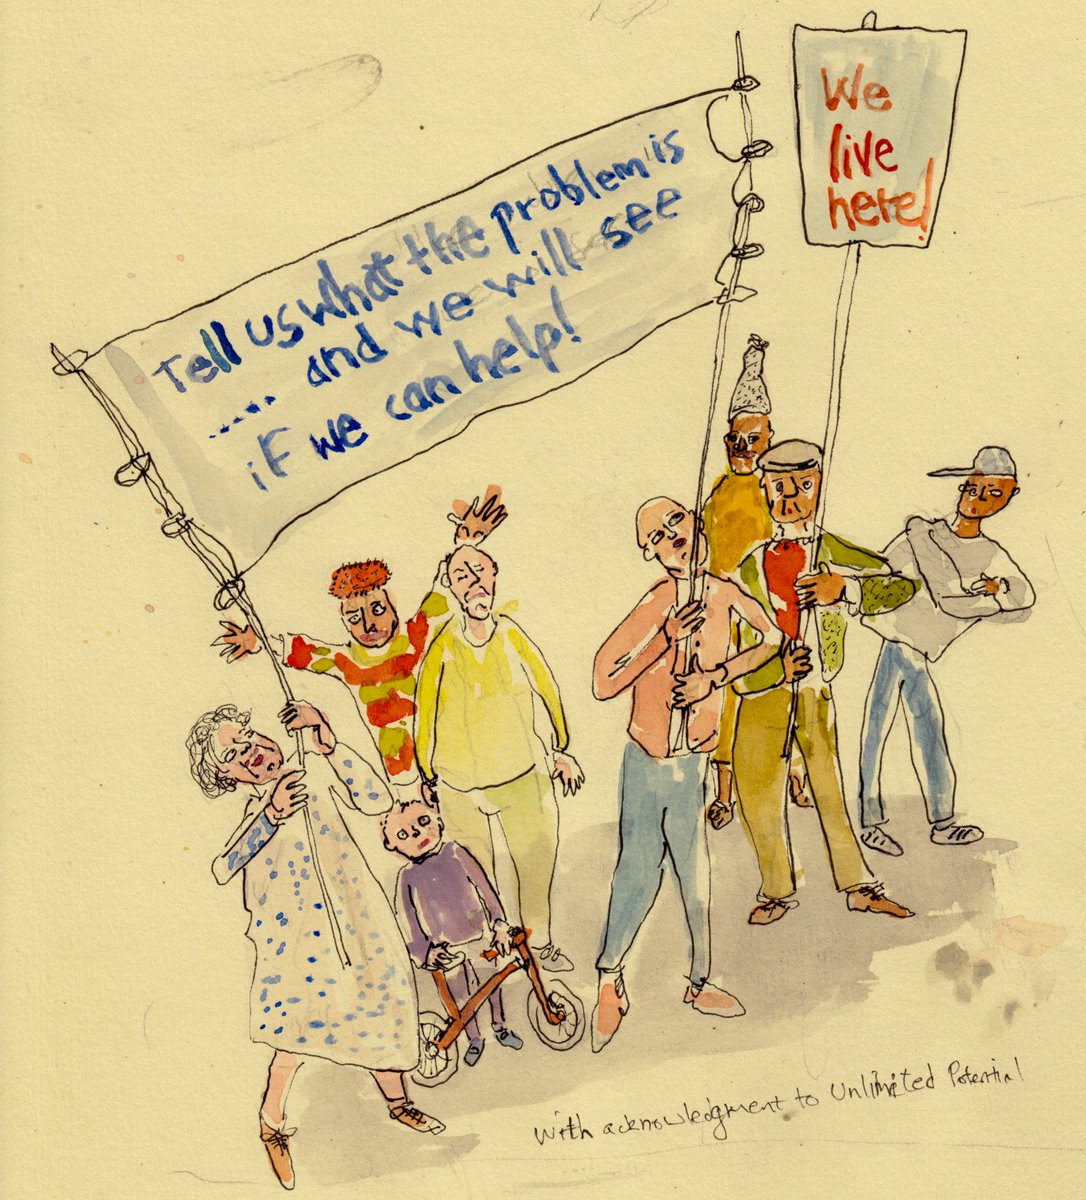 Tell us what the problem is
.... and we will see
if we can help!
We
live
here!
With acknowledgment to Unlimited Potential